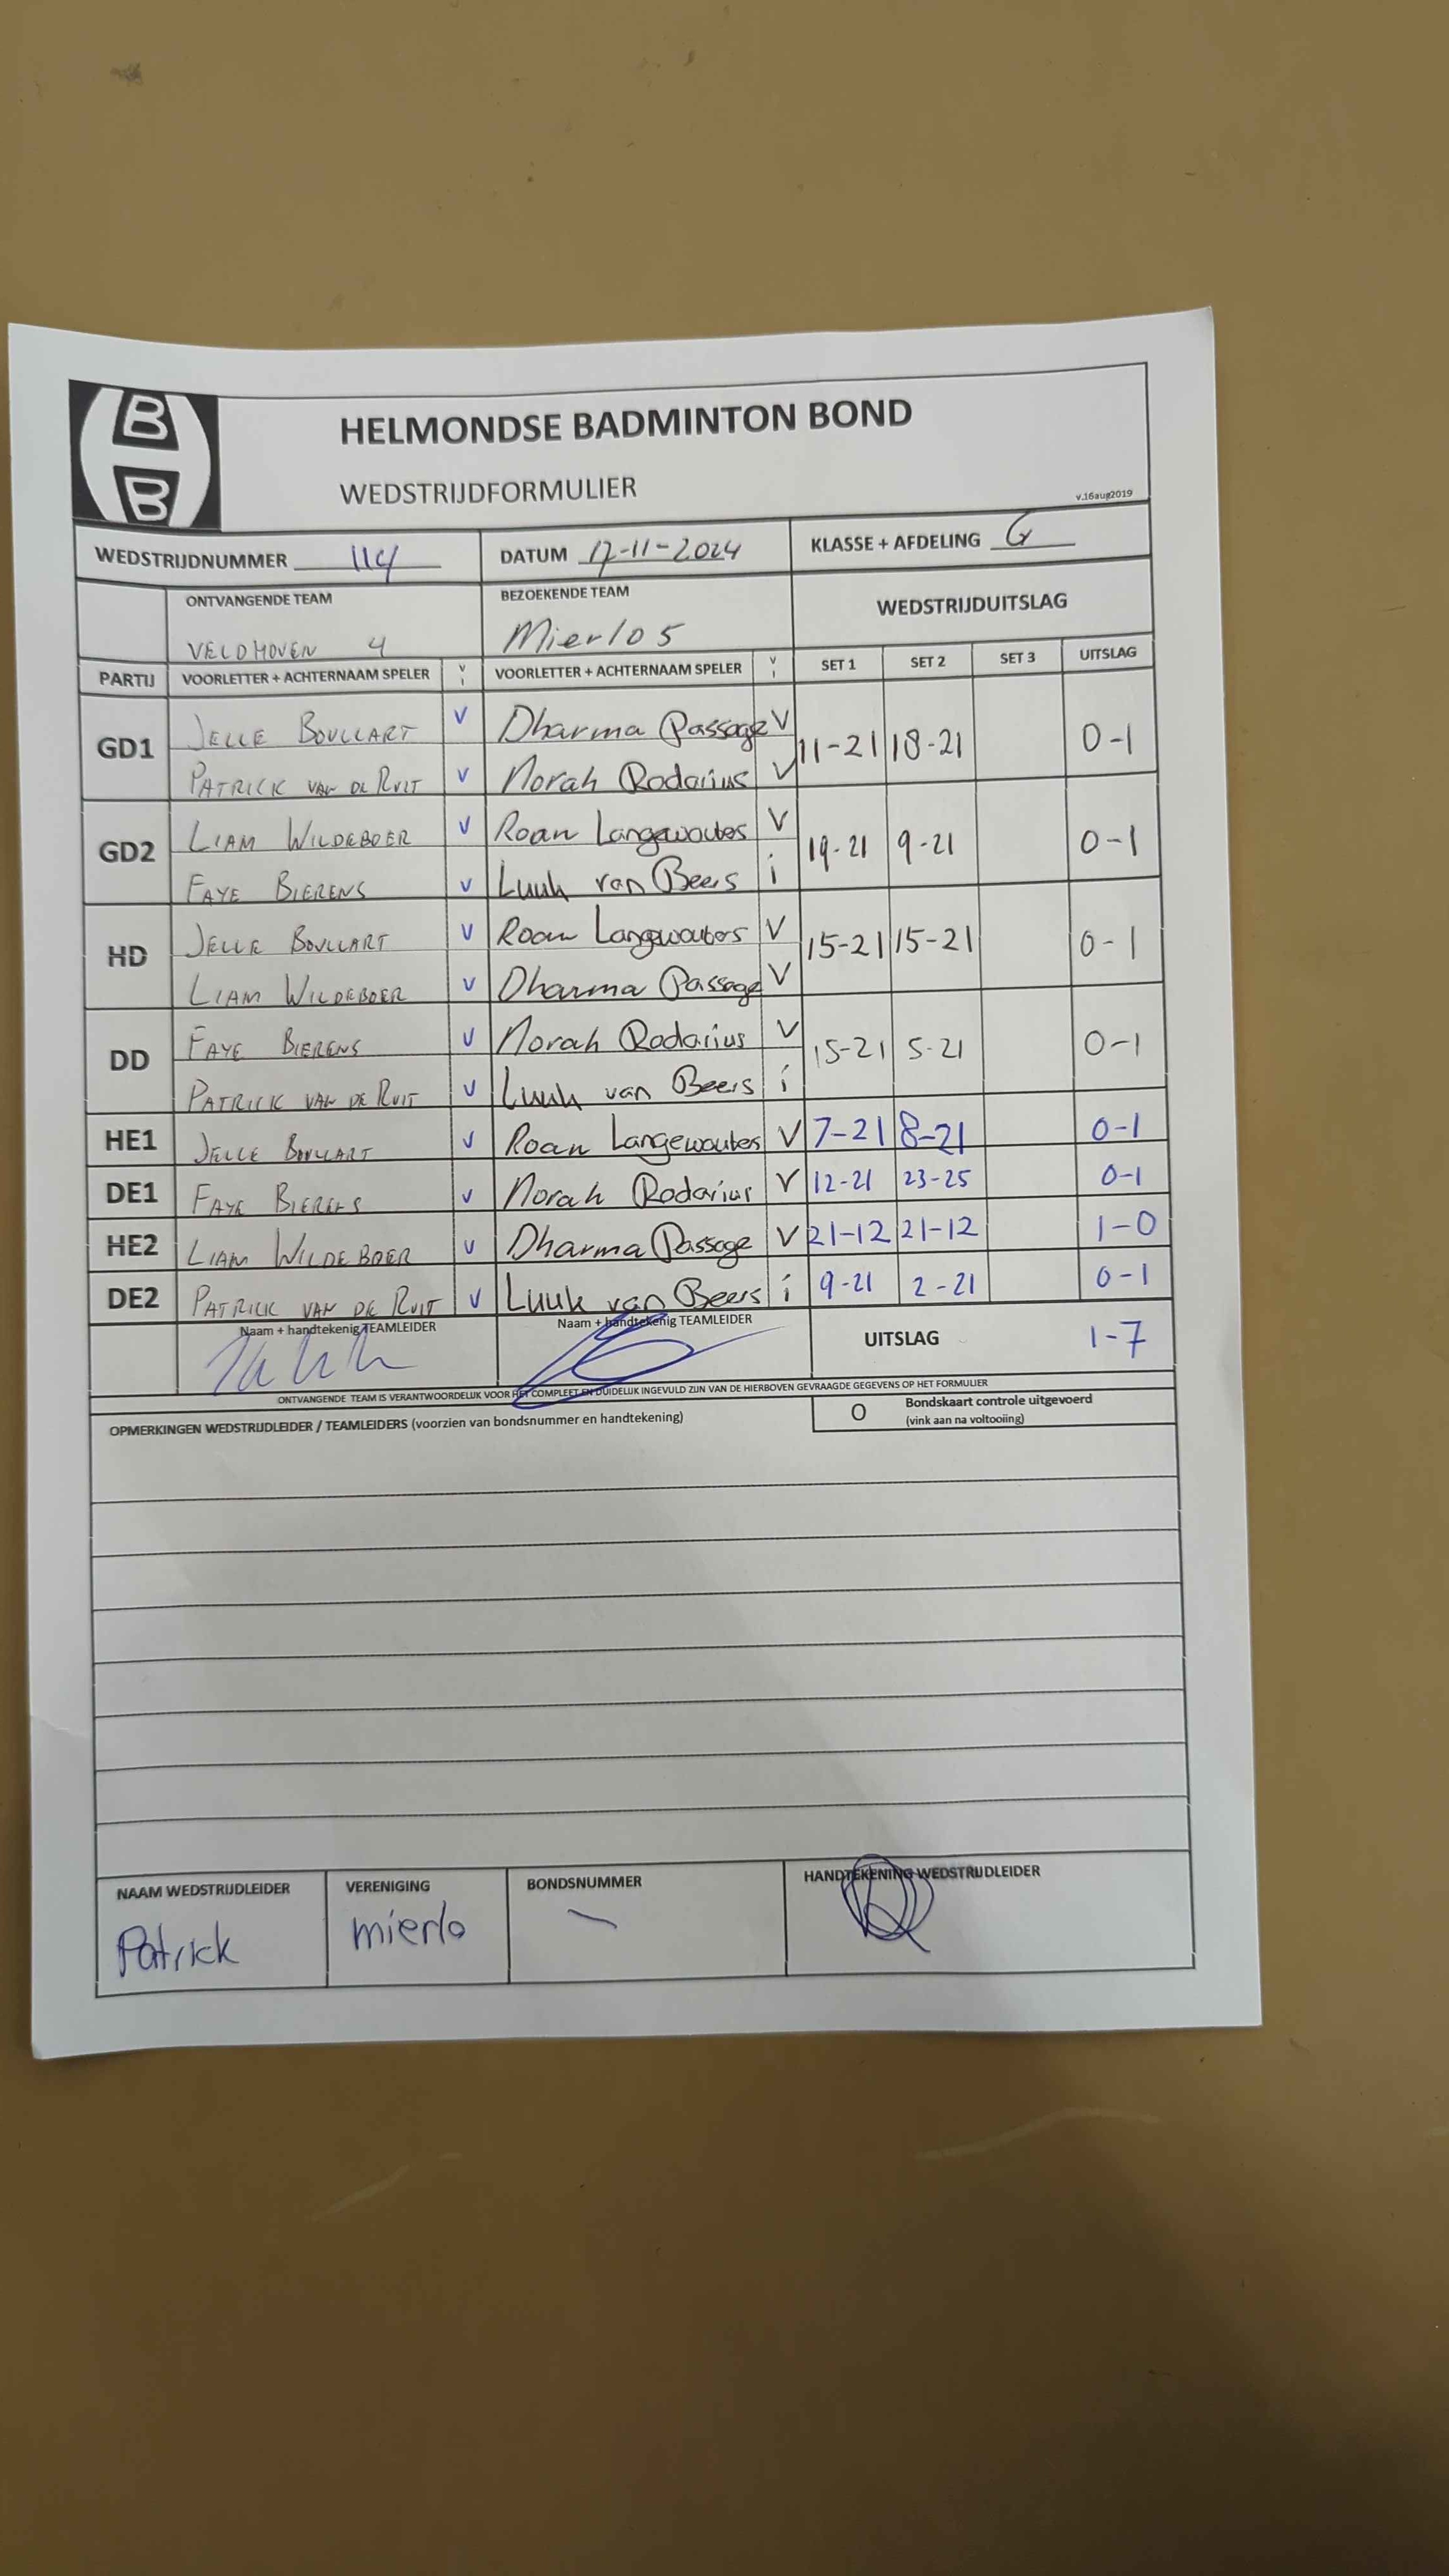 B
B
HELMONDSE BADMINTON BOND
WEDSTRIJDFORMULIER
v.16aug2019
WEDSTRIJDNUMMER 114 DATUM 17-11-2024 KLASSE + AFDELING G
ONTVANGENDE TEAM BEZOEKENDE TEAM WEDSTRIJDUITSLAG
VELDHOVEN 4 Mierlo 5
PARTIJ VOORLETTER + ACHTERNAAM SPELER V I VOORLETTER + ACHTERNAAM SPELER V I SET 1 SET 2 SET 3 UITSLAG
GD1 JELLE BOULLART V Dharma Passage V 11-21 18-21 0-1
PATRICK VAN DE RUIT V Norah Rodarius V
GD2 LIAM WILDEBOER V Roan Langewouters V 19-21 9-21 0-1
FAYE BIERENS V Luuk van Beers i
HD JELLE BOULLART V Roan Langewouters V 15-21 15-21 0-1
LIAM WILDEBOER V Dharma Passage V
DD FAYE BIERENS V Norah Rodarius V 15-21 5-21 0-1
PATRICK VAN DE RUIT V Luuk van Beers i
HE1 JELLE BOULLART V Roan Langewouters V 7-21 8-21 0-1
DE1 FAYE BIERENS V Norah Rodarius V 12-21 23-25 0-1
HE2 LIAM WILDEBOER V Dharma Passage V 21-12 21-12 1-0
DE2 PATRICK VAN DE RUIT V Luuk van Beers i 9-21 2-21 0-1
Naam + handtekenig TEAMLEIDER Naam + handtekenig TEAMLEIDER UITSLAG 1-7
ONTVANGENDE TEAM IS VERANTWOORDELIJK VOOR HET COMPLEET EN DUIDELIJK INGEVULD ZIJN VAN DE HIERBOVEN GEVRAAGDE GEGEVENS OP HET FORMULIER
OPMERKINGEN WEDSTRIJDLEIDER / TEAMLEIDERS (voorzien van bondsnummer en handtekening) O Bondskaart controle uitgevoerd
(vink aan na voltooiing)
NAAM WEDSTRIJDLEIDER VERENIGING BONDSNUMMER HANDTEKENING WEDSTRIJDLEIDER
Patrick mierlo –